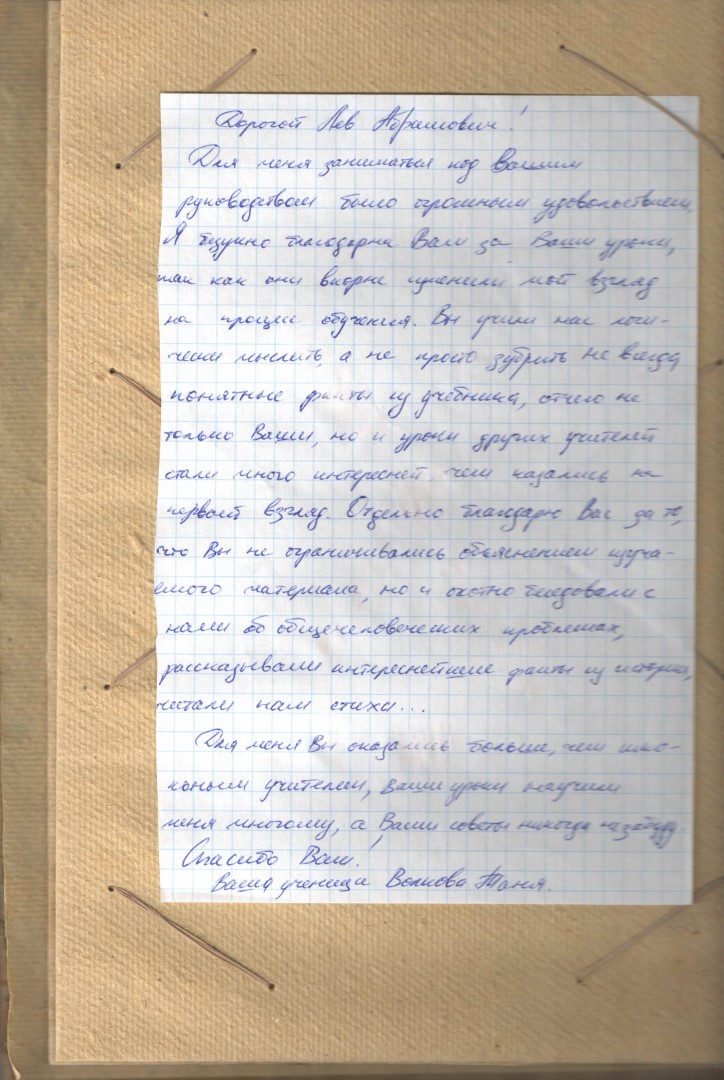 Дорогой Лев Абрамович!
Для меня заниматься под Вашим
руководством было огромным удовольствием.
Я безумно благодарна Вам за Ваши уроки,
так как они в корне изменили мой взгляд
на процесс обучения. Вы учили нас логи-
чески мыслить, а не просто зубрить не всегда
понятные факты из учебника, отчего не
только Ваши, но и уроки других учителей
стали много интересней, чем казались на
первый взгляд. Отдельно благодарю Вас за то,
что Вы не ограничивались объяснением изуча-
емого материала, но и охотно беседовали с
нами об общечеловеческих проблемах,
рассказывали интереснейшие факты из истории,
читали нам стихи...
Для меня Вы оказались больше, чем шко-
льным учителем, Ваши уроки научили
меня многому, а Ваши советы никогда не забуду.
Спасибо Вам!
Ваша ученица Волкова Таня.